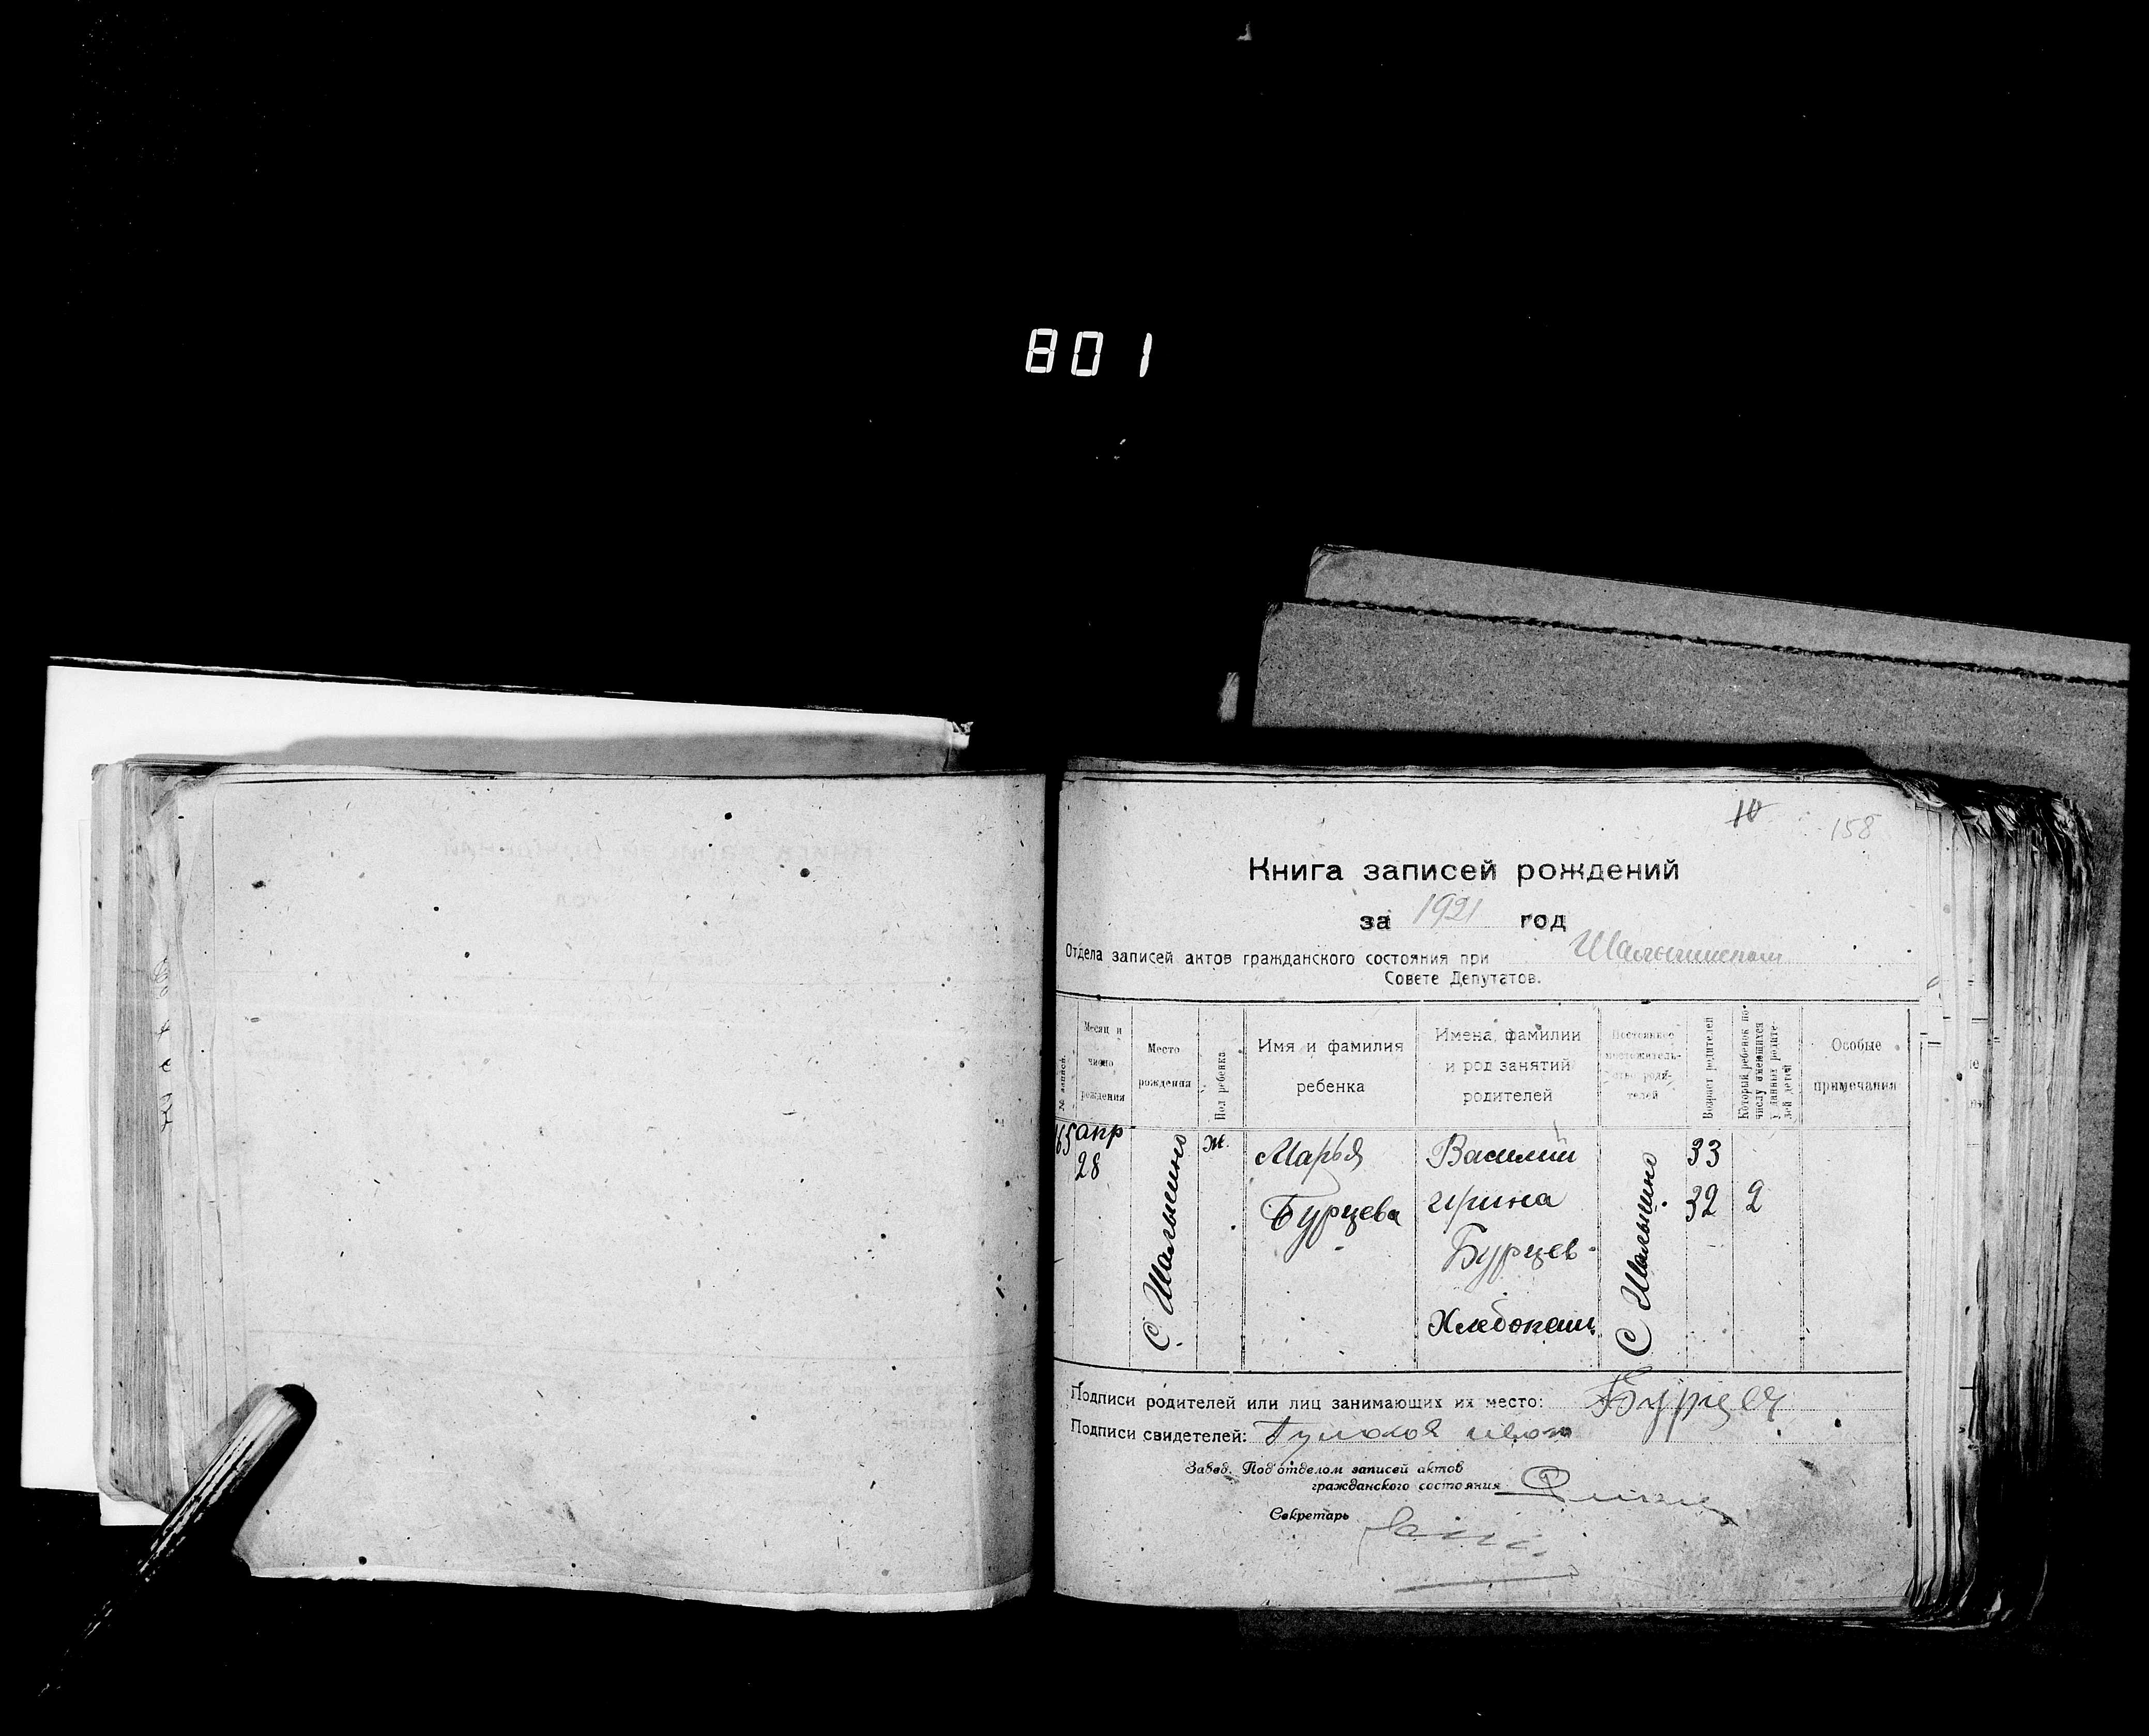 801
158
Книга записей рождений
за 1921 год
Отдела записей актов гражданского состояния при
Совете Депутатов.
№ записи.
Месяц и число рождения
Место рождения
Пол ребенка
Имя и фамилия ребенка
Имена, фамилии и род занятий родителей
Постоянное местожитель-ство роди-телей
Возраст родителей
Который ребенок по числу имеющихся у данных родите-лей детей
Особые примечания
65
апр
28
С. Шалыгино
ж.
Марья
Бурцева
Василий
Ирина
Бурцев
Хлебопаш
С Шалыгино
33
32
2
Подписи родителей или лиц занимающих их место: Бурцев
Подписи свидетелей:
Завед. Под'отделом записей актов
гражданского состояния
Секретарь